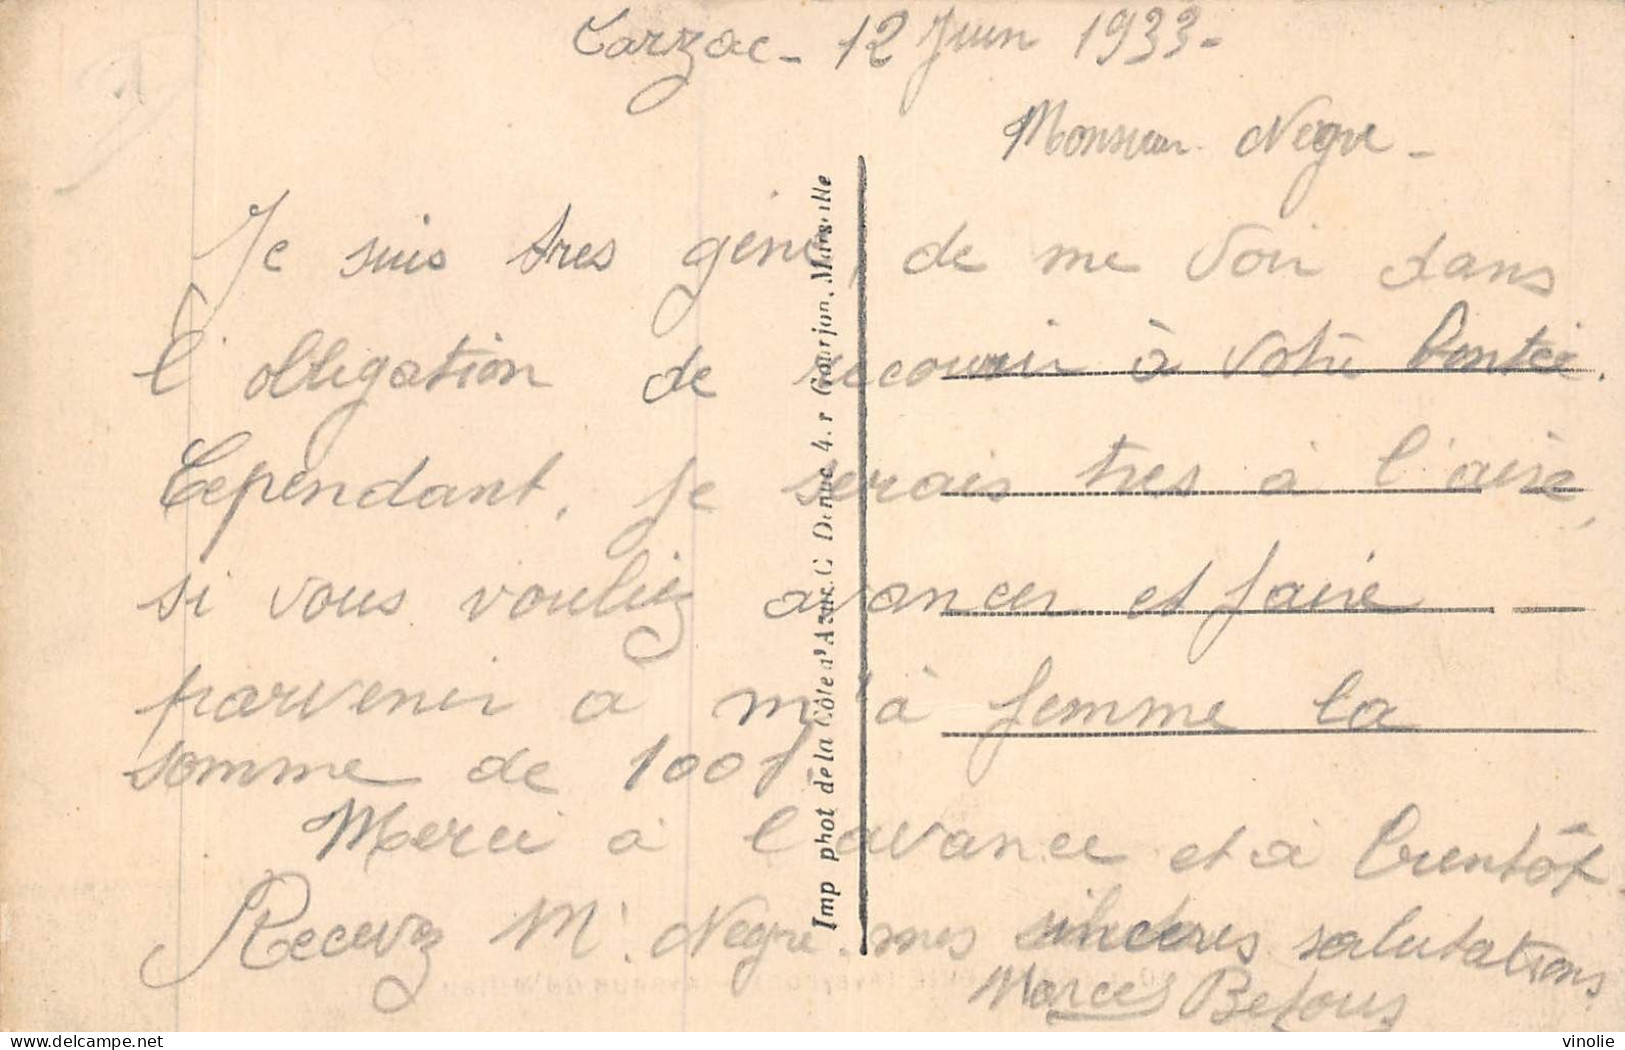 Tarzac - 12 Juin 1933 -
Monsieur Negre -
Je suis tres gene, de me voir dans
l'obligation de recourir à votre bonteé.
Cependant, je serais tres à l'aise,
si vous vouliez avancer et faire
parvenir a m'a femme la
somme de 100f
Merci à l'avance et à bientôt.
Recevez Mr. Negre. mes sincères salutations
Marcel Belous
Imp phot de la Côte d'Azur. C. Dinue 4. r Gourjon, Marseille
vinolie
delcampe.net